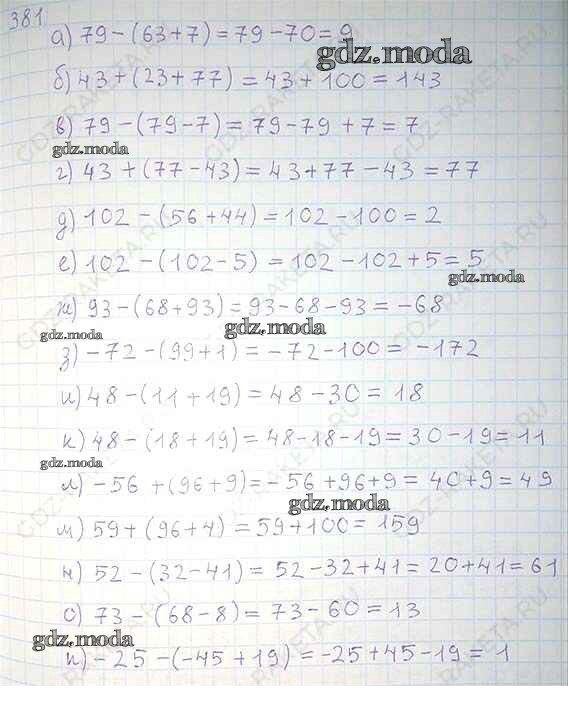 381
а) 79-(63+7)=79-70=9
gdz.moda
б) 43+(23+77)=43+100=143
в) 79-(79-7)=79-79+7=7
gdz.moda
г) 43+(77-43)=43+77-43=77
д) 102-(56+44)=102-100=2
е) 102-(102-5)=102-102+5=5
gdz.moda
ж) 93-(68+93)=93-68-93=-68
gdz.moda gdz.moda
з) -72-(99+1)=-72-100=-172
и) 48-(11+19)=48-30=18
к) 48-(18+19)=48-18-19=30-19=11
gdz.moda
л) -56+(96+9)=-56+96+9=40+9=49
gdz.moda
м) 59+(96+4)=59+100=159
н) 52-(32-41)=52-32+41=20+41=61
о) 73-(68-8)=73-60=13
gdz.moda
п) -25-(-45+19)=-25+45-19=1
GDZ-RAKETA.RU